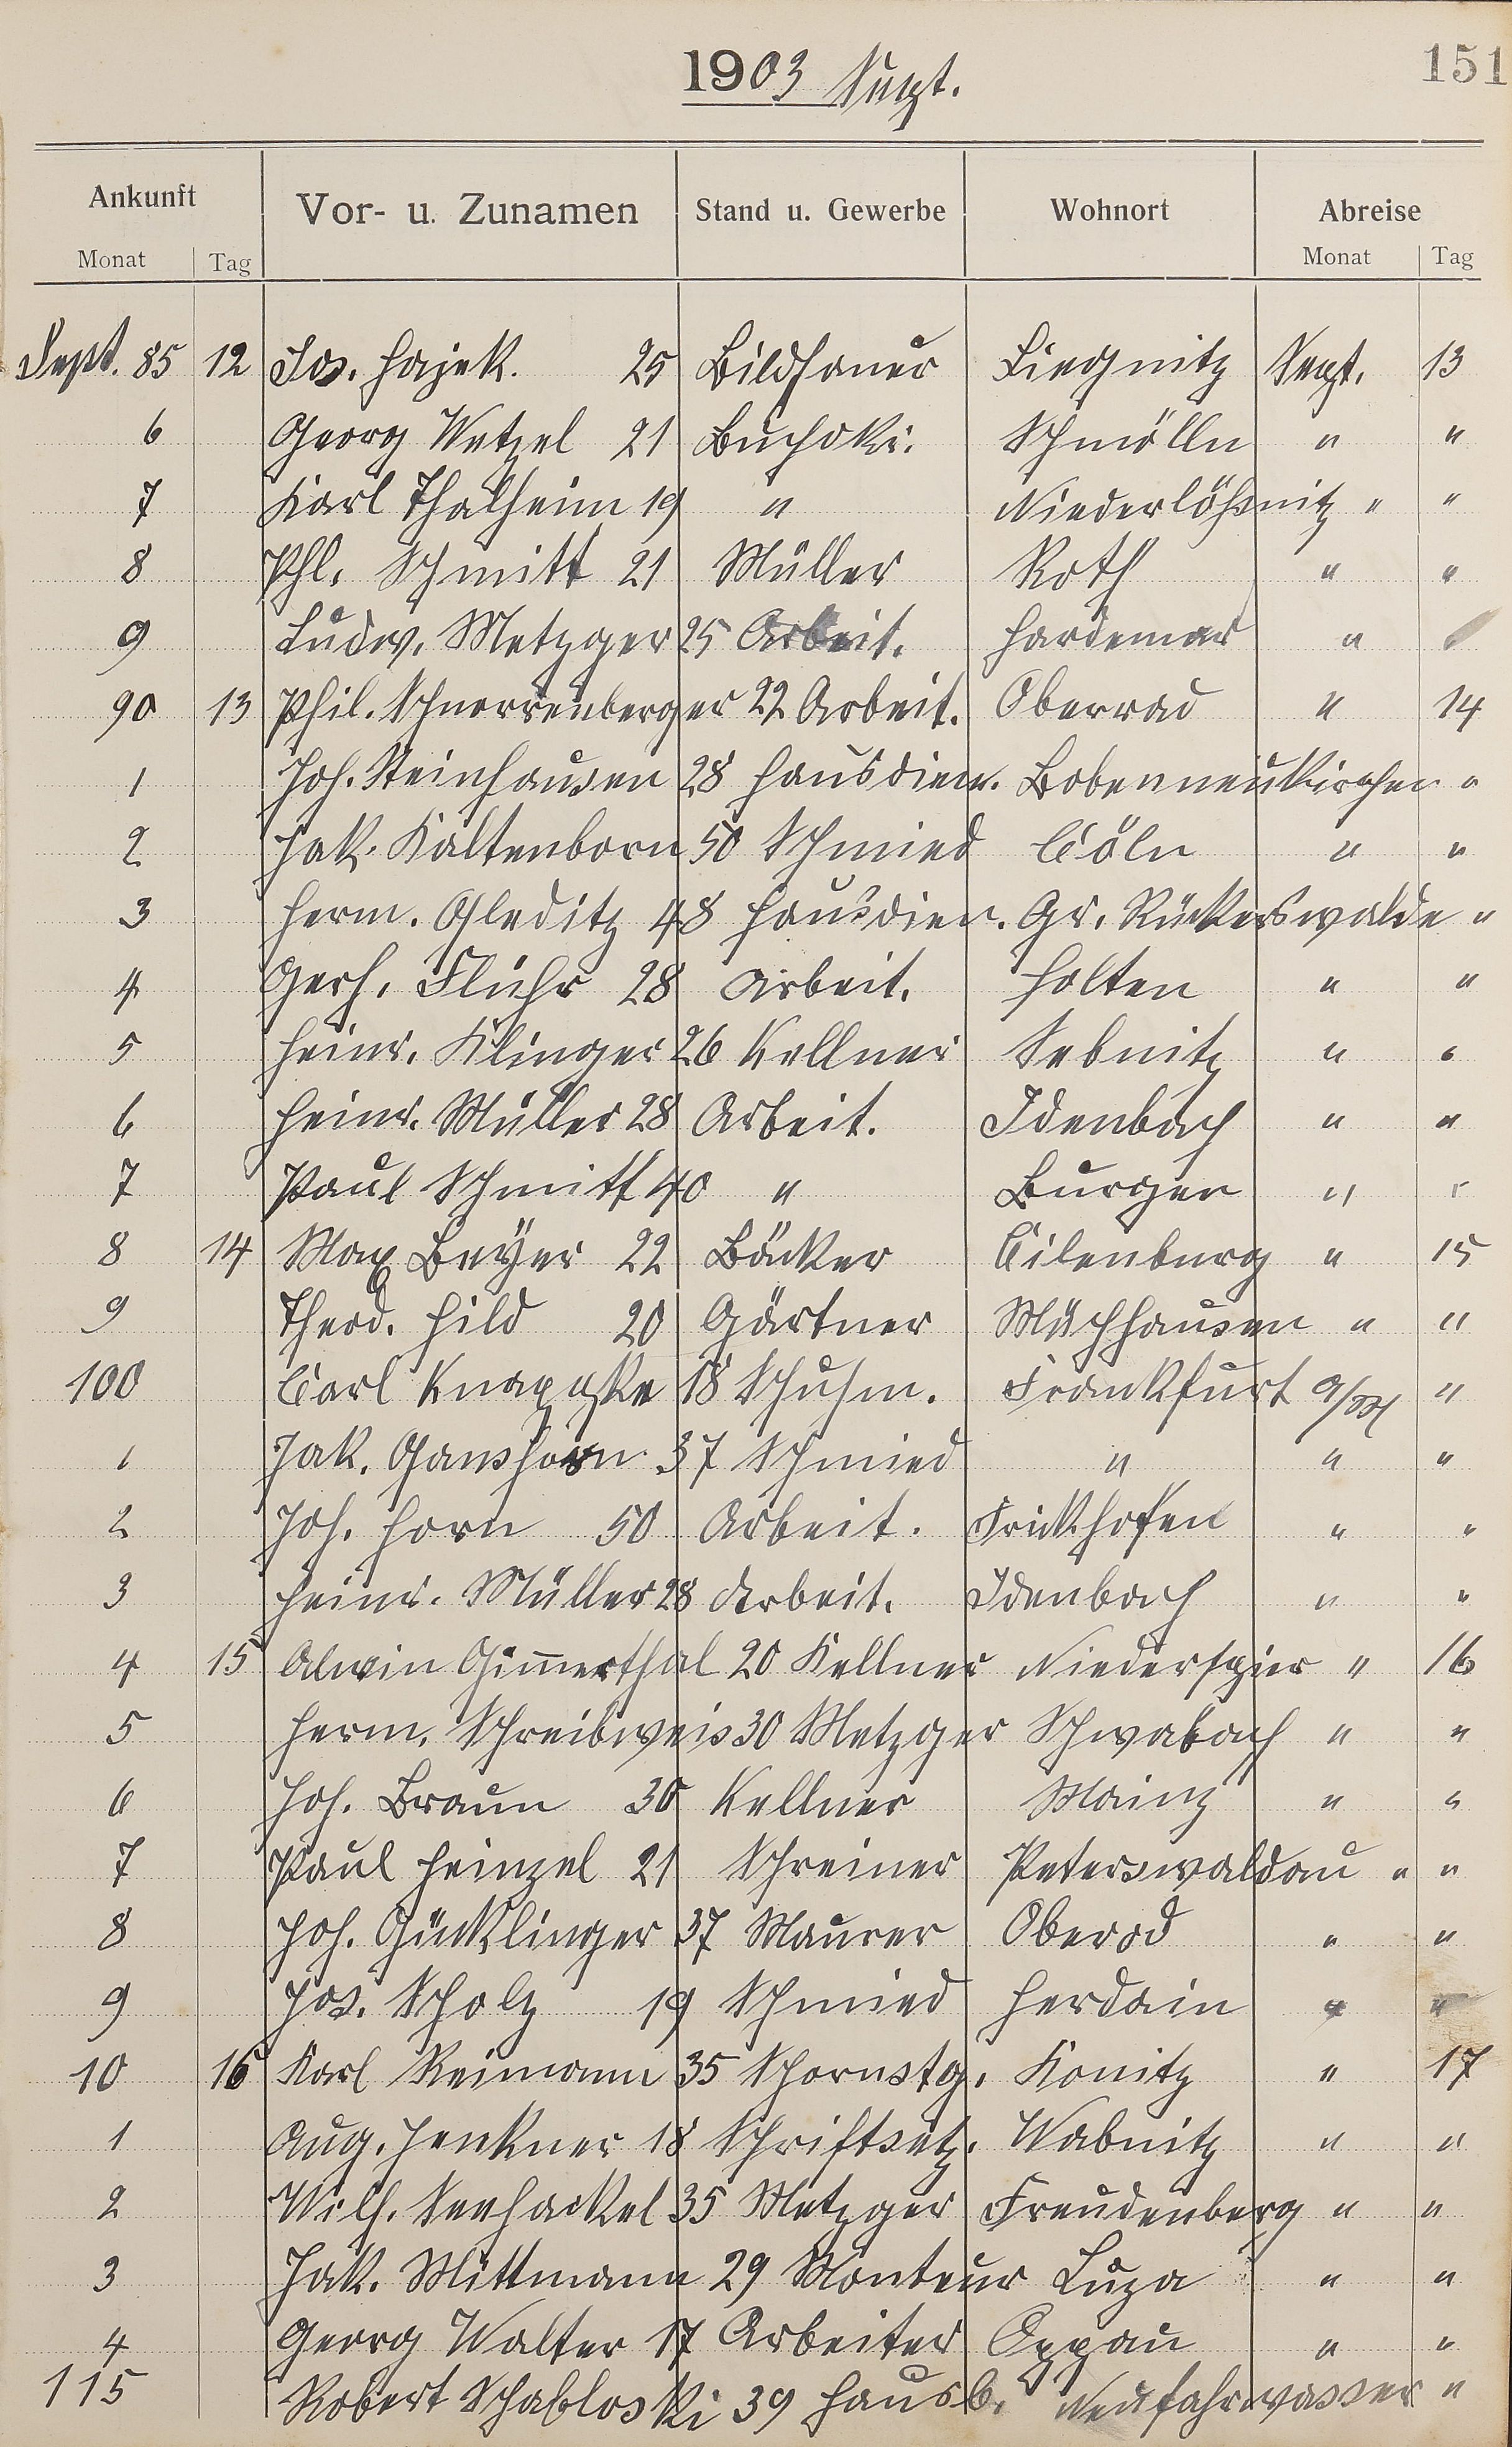 1903 Sept.
151
Ankunft Vor- u. Zunamen Stand u. Gewerbe Wohnort Abreise
Monat Tag Monat Tag
Sept. 85 12 Jos. Hajek. 25 Bildhauer Liegnitz Sept. 13
6 Georg Wetzel 21 Buchdr. Schmölln " "
7 Karl Thalheim 19 " Niederlößnitz " "
8 Phl. Schmitt 21 Müller Roth " "
9 Ludw. Metzger 25 Arbeit. Hardemar "
90 13 Phil. Schnorrenberger 22 Arbeit. Oberrad " 14
1 Joh. Steinhausen 28 Hausdien. Bobenneukirchen "
2 Jak. Kaltenborn 50 Schmied Cöln " "
3 Herm. Gleditz 48 Hausdien. Gr. Rückerswalde "
4 Gerh. Flühr 28 Arbeit. Holten " "
5 Heinr. Klinger 26 Kellner Sebnitz " "
6 Heinr. Müller 28 Arbeit. Idenbach " "
7 Paul Schmitt 40 " Burgen " "
8 14 Max Beyer 22 Bäcker Eilenburg " 15
9 Theod. Hild 20 Gärtner Mächhausen " "
100 Carl 18 Schuhm. Frankfurt a/M "
1 Jak. Ganshorn 37 Schmied " " "
2 Joh. Horn 50 Arbeit. Frickhofen " "
3 Heinr. Müller 28 Arbeit. Idenbach " "
4 15 Alwin Gim̅erthal 20 Kellner Niederspier " 16
5 Herm. Schreibweis 30 Metzger Schwabach " "
6 Joh. Braun 30 Kellner Mainz " "
7 Paul Heinzel 21 Schreiner Peterswaldau " "
8 Joh. Gücklinger 37 Maurer Oberod " "
9 Jos. Scholz 19 Schmied Herdain " "
10 16 Karl Reimann 35 Schornstg. Konitz " 17
1 Aug. Jenkner 18 Schriftsetz. Wabnitz " "
2 Wilh. Seehackel 35 Metzger Freudenberg " "
3 Jak. Mittmann 29 Monteur Luza " "
4 Georg Walter 17 Arbeiter Oppau " "
115 Robert Schabloski 39 Hausb. Neufahrwasser "